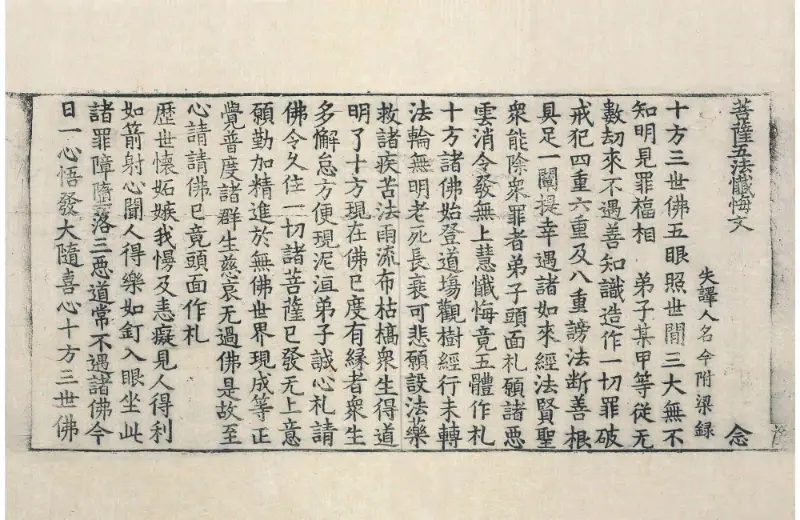 菩薩五法懺悔文
失譯人名今附梁録 念
十方三世佛五眼照世間三大無不
知明見罪福相 弟子某甲等從无
數劫來不遇善知識造作一切罪破
戒犯四重六重及八重謗法断善根
具足一闡提幸遇諸如來經法賢聖
衆能除衆罪者弟子頭面札願諸惡
雲消令發無上慧懺悔竟五體作札
十方諸佛始登道場觀樹經行未轉
法輪無明老死長衰可悲願設法藥
救諸疾苦法雨流布枯槁衆生得道
明了十方現在佛已度有縁者衆生
多懈怠方便現泥洹弟子誠心札請
佛令久住一切諸菩薩已發无上意
願勤加精進於無佛世界現成等正
覺普度諸群生慈哀无過佛是故至
心請請佛已竟頭面作札
歷世懷妬嫉我慢及恚癡見人得利
如箭射心聞人得樂如釘入眼坐此
諸罪障墮落三惡道常不遇諸佛今
日一心悟發大隨喜心十方三世佛